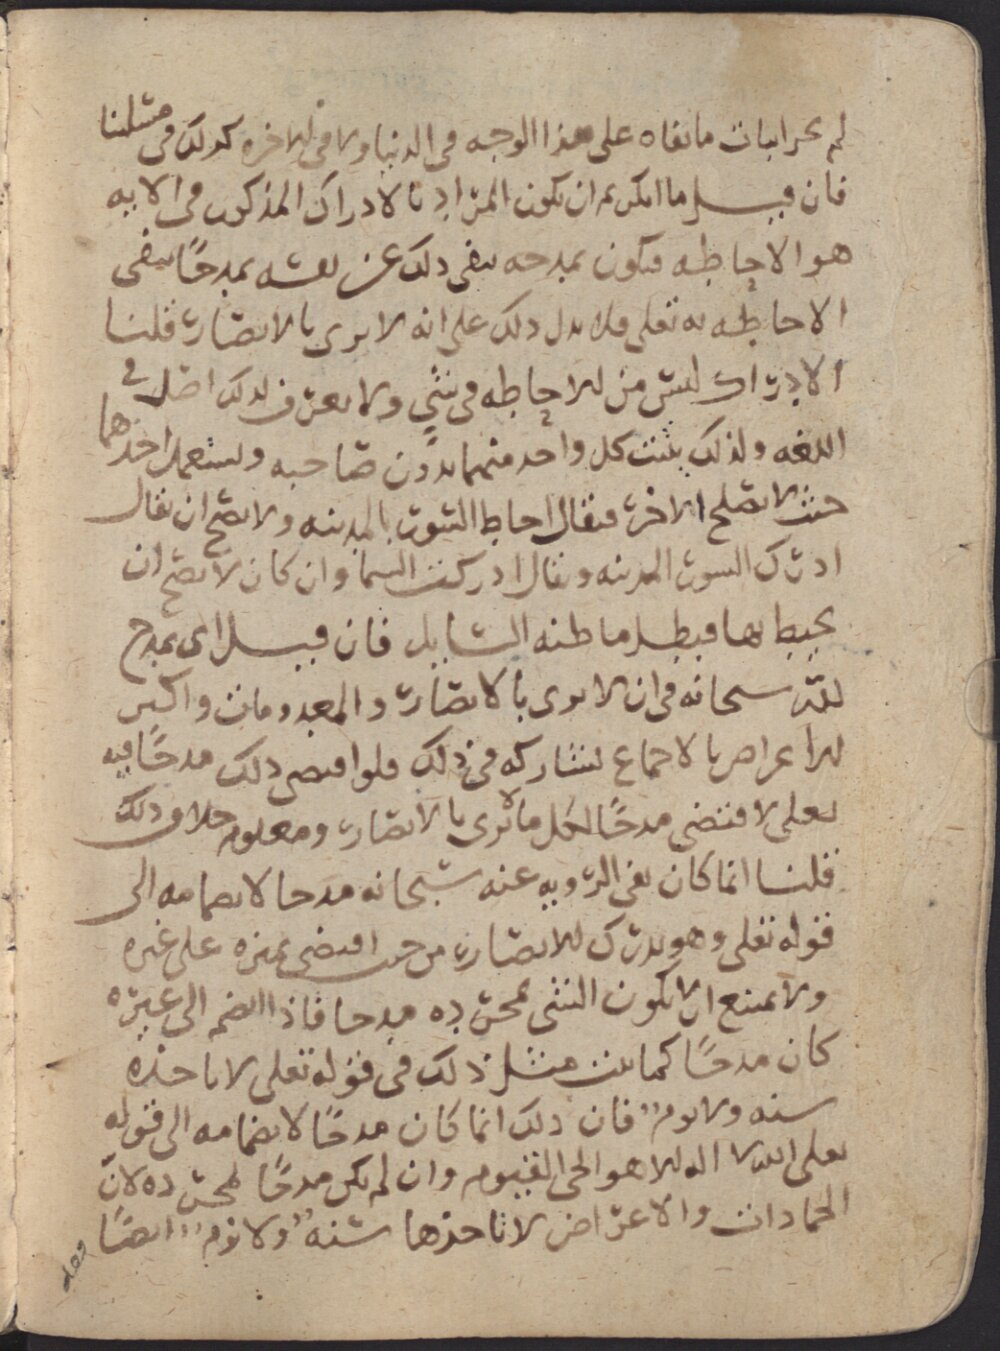 لم يجز اثبات ما نفاه على هذا الوجه فى الدنيا ولا فى الاخره كذلك فى مثلنا
فان قيل ما انكرتم ان يكون المراد بالادراك المذكور فى الايه
هو الاحاطه فيكون تمدحه بنفى ذلك عن نفسه تمدحًا بنفى
الاحاطه به تعلى فلا يدل ذلك على انه لا يرى بالابصار قلنا
الادراك ليس من الاحاطه فى شي ولا يعرف لذلك اصل فى
اللغه ولذلك يثبت كل واحد منهما بدون صاحبه ويستعمل احدهما
حيث لا يصلح الاخر فيقال احاط السور بالمدينه ولا يصح ان يقال
ادرك السور المدينه ويقال ادركت السما وان كان لا يصح ان
يحيط بها فبطل ما ظنه السايل فان قيل اى تمدح
لله سبحانه فى ان لا يرى بالابصار والمعدومات واكثر
الاعراض بالاجماع تشاركه فى ذلك فلو اقتضى ذلك مدحًا فيه
تعلى لاقتضى مدحًا لكل ما لا يرى بالابصار ومعلوم خلاف ذلك
قلنا انما كان نفى الرؤيه عنه سبحانه مدحا لانضمامه الى
قوله تعلى وهو يدرك الابصار من حيث اقتضى تميزه على غيره
ولا يمتنع ان لا يكون الشي بمجرده مدحا فاذا انضم الى غيره
كان مدحًا كما يثبت مثل ذلك فى قوله تعلى لا تاخذه
سنه ولا نوم فان ذلك انما كان مدحًا لانضمامه الى قوله
تعلى الله لا اله الا هو الحى القيوم وان لم يكن مدحًا بمجرده لان
الجمادات والاعراض لا تاخذها سنه ولا نوم ايضًا